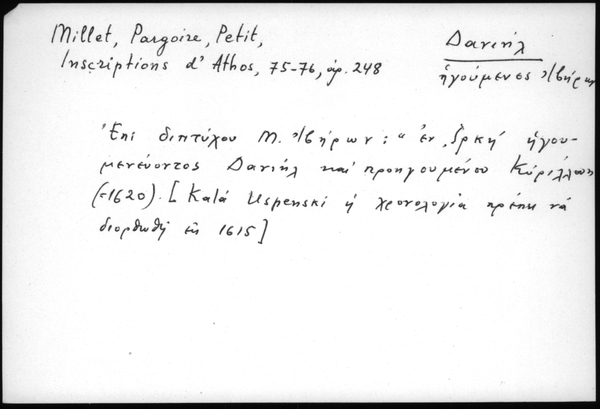 Millet, Pargoire, Petit,
Inscriptions d'Athos, 75-76, ἀρ. 248
Δανιήλ
ἡγούμενος Ἰβήρων
Ἐπί διπτύχου Μ. Ἰβήρων: "ἐν ἡγου-
μενεύοντος Δανιήλ καί προηγουμένου Κυρίλλου
(=1620). [Κατά Uspenski ἡ χρονολογία πρέπει νά
διορθωθῆ εἰς 1615]